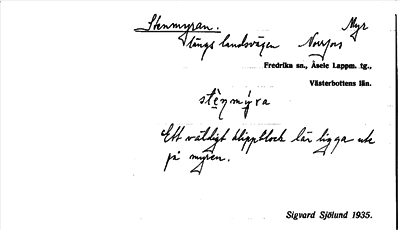 Stenmyran. Myr
längs landsvägen Norrfors
Fredrika sn., Åsele Lappm. tg.,
Västerbottens län.
stènmýra
Ett väldigt klippblock lär ligga ute
på myren.
Sigvard Sjölund 1935.